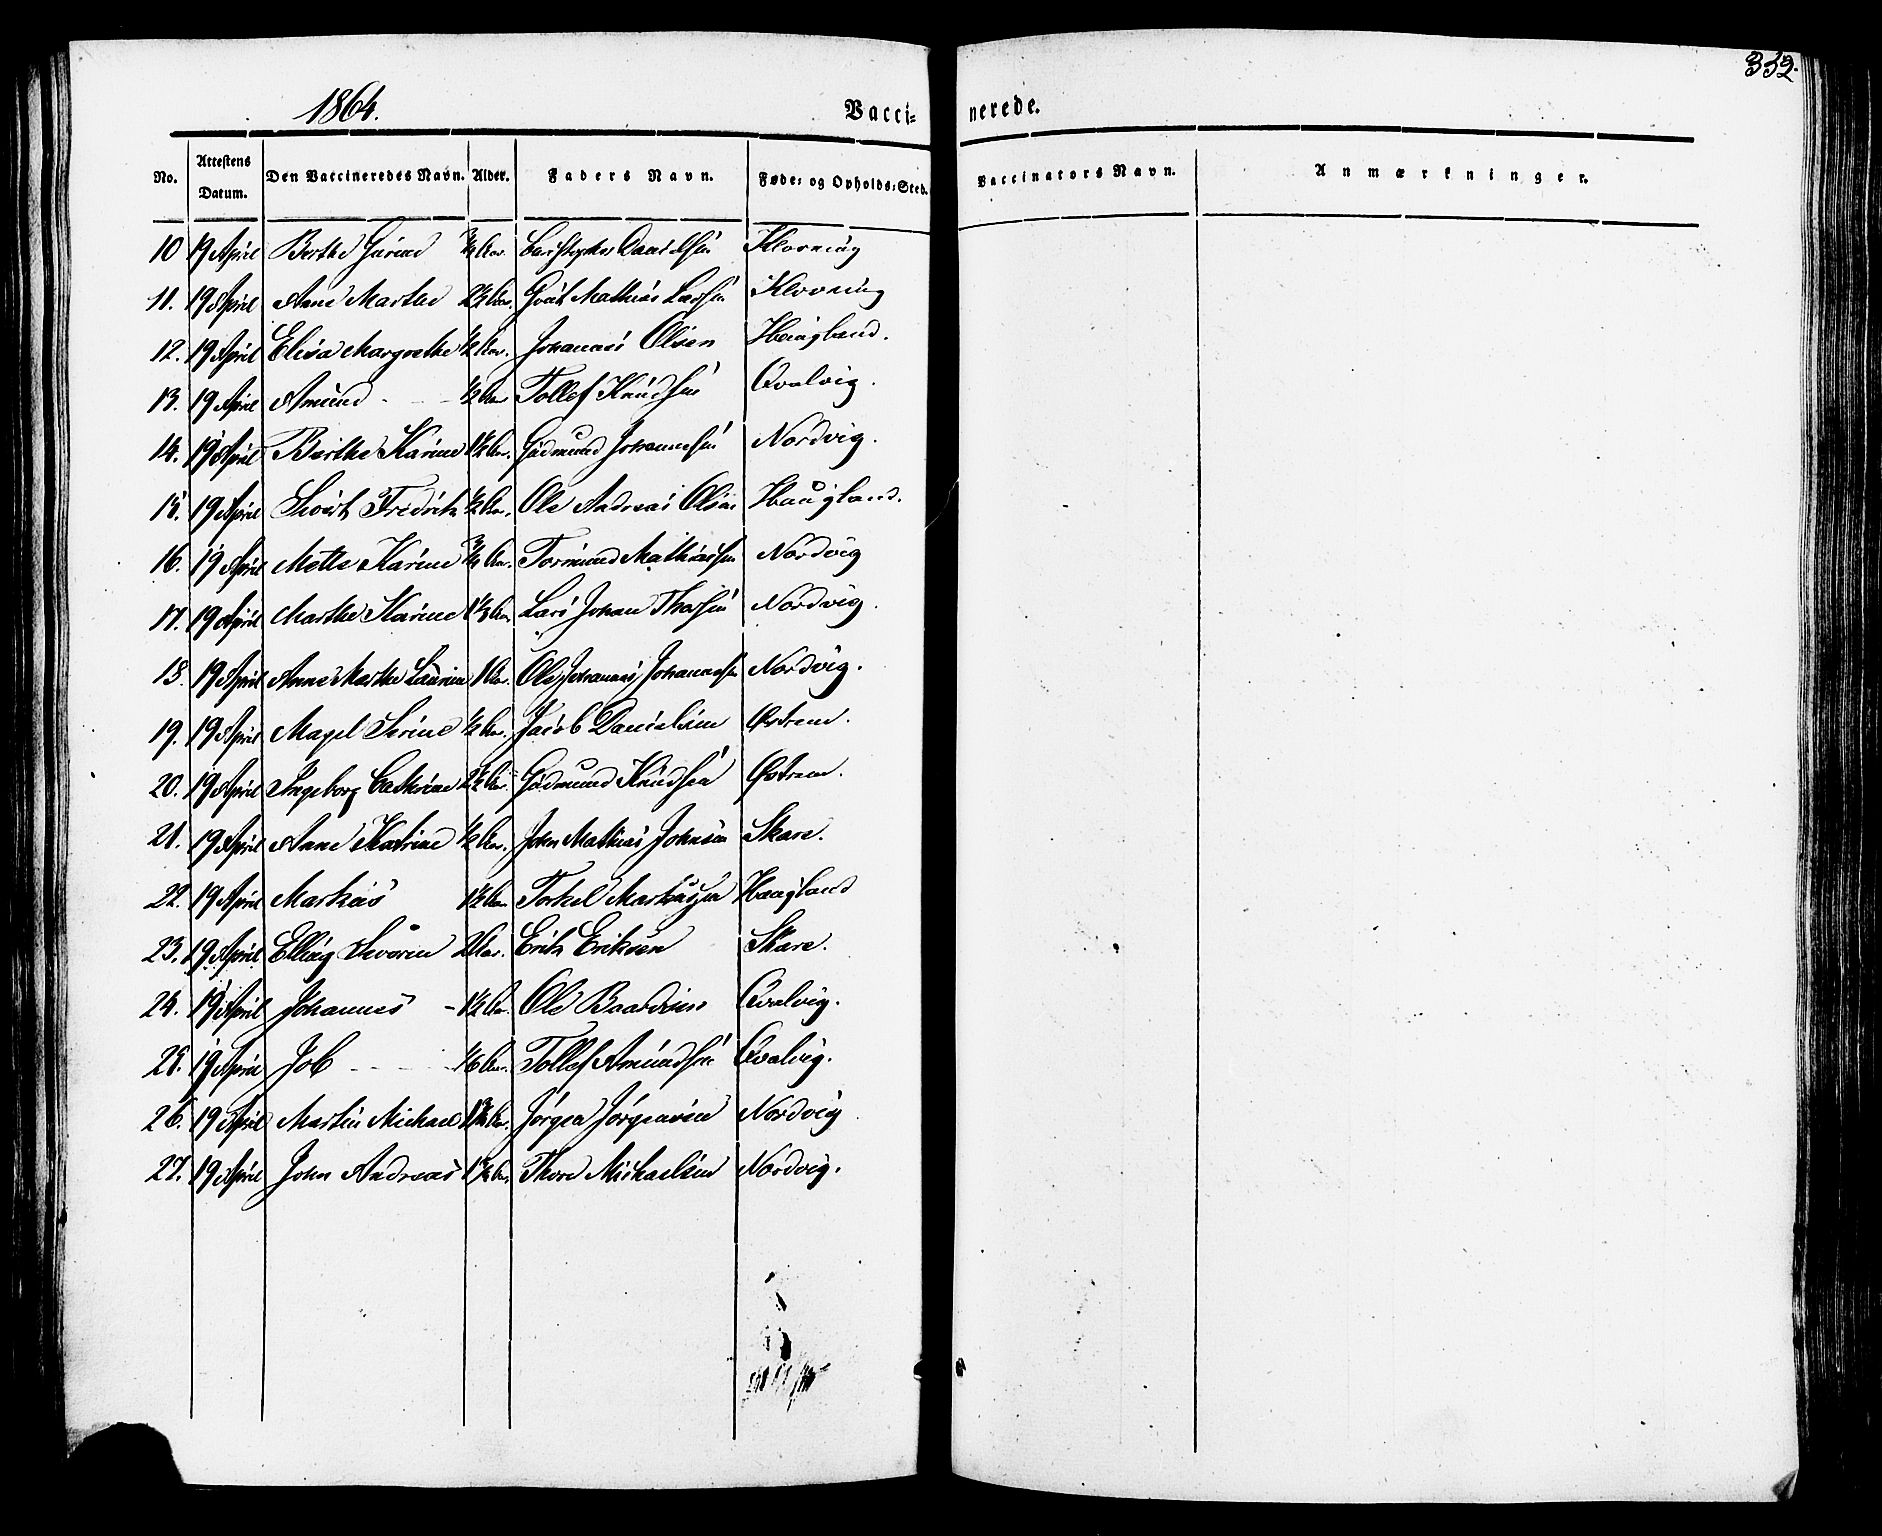 332.
1864.
Vacci- nerede.
No. Attestens Datum. Den Vaccineredes Navn. Alder. Faders Navn. Føde- og Opholds-Sted. Vaccinators Navn. Anmærkninger.
10 19 April Berthe Gurine 3/4 Aar. Christopher Danielsen Klovning
11. 19 April Anne Marthe 2 1/2 Aar. Mathias Larsen Klovning
12. 19 April Elisa Margrethe 1/2 Aar. Johannes Olsen Haugland.
13. 19 April Amund - - 1/2 Aar Tollef Knudsen Qvalvig.
14. 19 April Berthe Karine 1 1/2 Aar. Gudmund Johannesen Nordvig.
15. 19 April Sivert Fredrik 1/2 Aar. Ole Andreas Olsen Haugland.
16. 19 April Mette Karine 3/4 Aar. Tormund Mathiassen Nordvig
17. 19 April Marthe Karine Aar. Lars Johan Nordvig.
18. 19 April Anne Marthe Laurine 1 Aar. Ole Johannes Johannessen Nordvig.
19. 19 April Magel Serine 1/2 Aar. Jacob Danielsen Østrem.
20. 19 April Ingeborg Cathrine 2 1/2 Aar. Gudmund Knudsen Østrem.
21. 19 April Anne Katrine 1/2 Aar. John Mathias Johnsen Skare.
22. 19 April Markus 1 1/2 Aar Torkel Markussen Haugland
23. 19 April Elling Severin 2 Aar. Erik Eriksen Skare.
24. 19 April Johannes - 1 1/2 Aar. Ole Baardsen Qvalvig.
25. 19 April Job - - - 1/6 Aar. Tollef Amundsen Qvalvig.
26. 19 April Martin Michael Aar. Jørgen Jørgensen Nordvig
27. 19 April John Andreas Aar. Thore Michaelsen Nordvig.